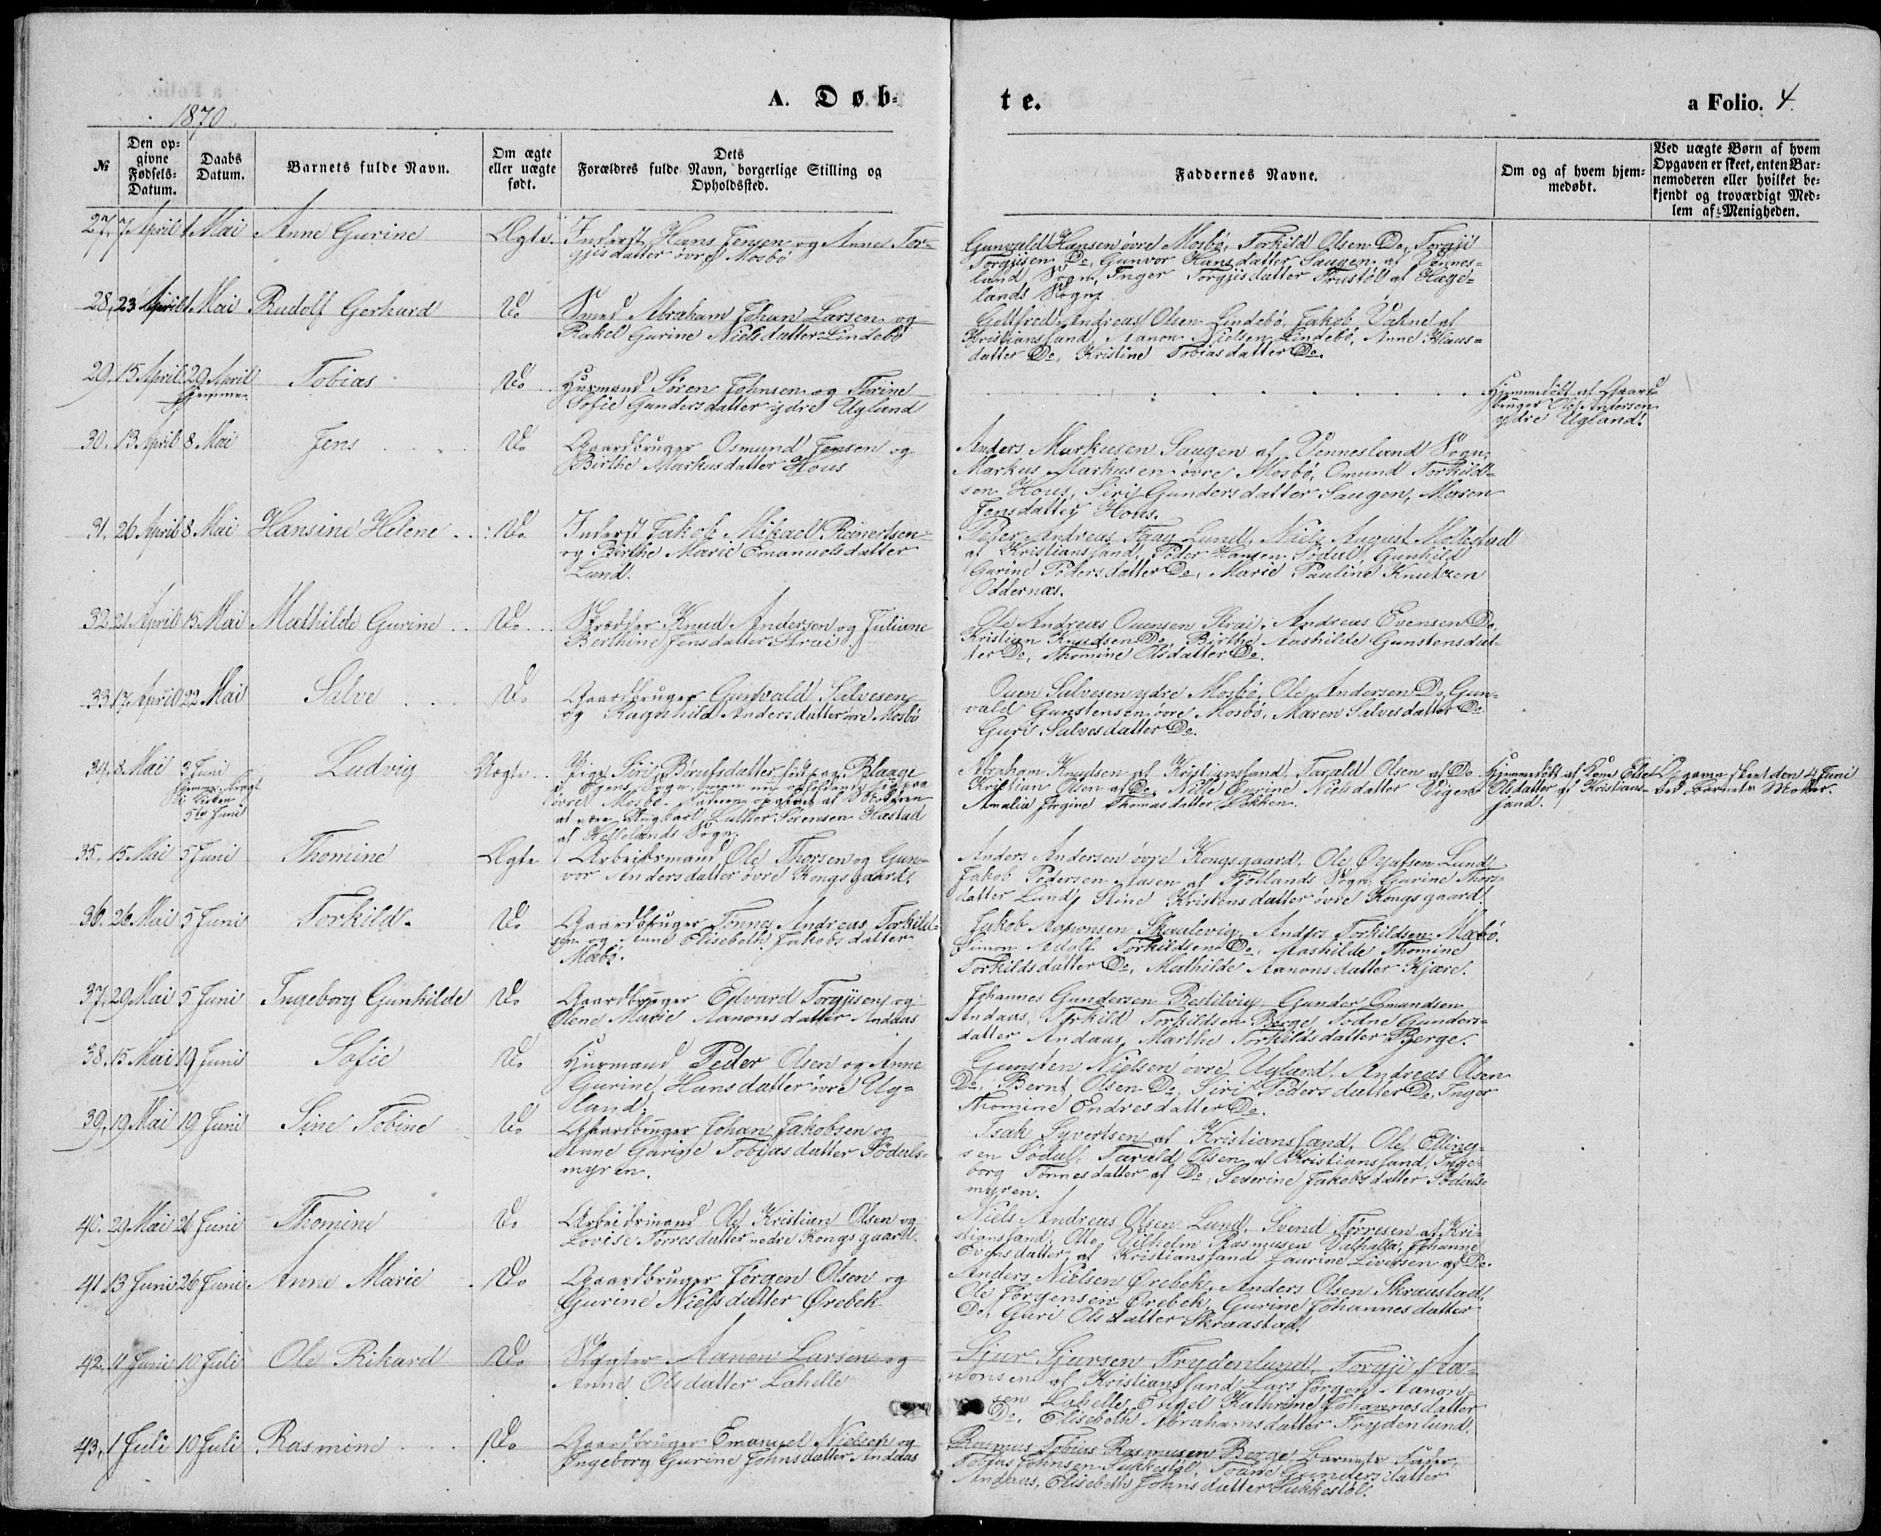 1870.
A. Døb-
te.
a Folio. 4.
№
Den opgivne Fødsels-Datum.
Daabs Datum.
Barnets fulde Navn.
Om ægte eller uægte født.
Dets Forældres fulde Navn, borgerlige Stilling og Opholdssted.
Faddernes Navne.
Om og af hvem hjemmedøbt.
Ved uægte Børn af hvem Opgaven er skeet, enten Barnemoderen eller hvilket bekjendt og troværdigt Medlem af Menigheden.
27. 7 April 1 Mai Anne Gurine Ægte. Inderst Hans Jensen og Anne Tor-
gjesdatter øvre Mosbø
Gunvald Hansen øvre Mosbø, Torkild Olsen Do, Torgji
Torgjisen Do, Gunvor Hansdatter Saugen af Vennes-
land Sogn, Inger Torgjisdatter af Hæge-
lands Sogn.
28. 23 April 1 Mai Rudolf Gerhard Do Smed Abraham Johan Larsen og
Rakel Gurine Nielsdatter Lindebø
Gottfred Andreas Olsen Lindebø, Jakob af
Kristianssand, Aanon Nielsen Lindebø, Anne Klaus-
datter Do, Kristine Tobiasdatter Do.
29. 15 April 29 April
hjemme.
Tobias Do Husmand Søren Johnsen og Thrine
Sofie Gundersdatter ydre Ugland
Hjemmedøbt af Gaard-
bruger Ole Andersen
ydre Ugland.
30. 13 April 8 Mai Jens Do Gaardbruger Osmund Jensen og
Birthe Markusdatter Hous
Anders Markusen Saugen af Vennesland Sogn,
Markus Markusen øvre Mosbø, Omund Torkild-
sen Hous, Siri Gundersdatter Saugen,
Jensdatter Hous.
31. 26 April 8 Mai Hansine Helene Do Inderst Jakob Mikael Reinertsen
og Birthe Marie Emanuelsdatter
Lund.
Peter Andreas Lund, Niels August
af Kristianssand, Peder Hansen Sødal, Gunhild
Gurine Pedersdatter Do, Marie Pauline Knutzen
Oddernæs.
32. 21 April 15 Mai Mathilde Gurine Do Skrædder Knud Andersen og Juliane
Berthine Jensdatter Strai
Ole Andreas Ouensen Strai, Andreas Evensen Do,
Kristian Knudsen Do, Birthe Aashilde Gunstensdat-
ter Do, Thomine Olsdatter Do.
33. 17 April 22 Mai Salve Do Gaardbruger Gunvald Salvesen
og Ragnhild Andersdatter øvre Mosbø
Ouen Salvesen ydre Mosbø, Ole Andersen Do, Gun-
vald Gunstensen øvre Mosbø, Maren Salvesdatter Do
Guri Salvesdatter Do.
34. 8 Mai 3 Juni
hjemme,
i Kirken
5te Juni
Ludvig Uægte Pige Siri Børufsdatter født paa Blaage
i Sogn, men nu opholdende sig paa
øvre Mosbø. Faderen opgivet af Moderen
at være Ungkarl Luther Sørensen
af Hellelands Sogn.
Abraham Knudsen af Kristianssand, Tarald Olsen af Do
Kristian Olsen af Do, Nille Gurine Nielsdatter Vigen
Amalia Jørgine Thomasdatter Løkken.
Hjemmedøbt af Kone Else
Olsdatter af Kristians-
sand.
Opgaven skeet den 4 Juni
ved Barnets Moder.
35. 15 Mai 5 Juni Thomine Ægte Arbeidsmand Ole Thorsen og Gun-
vor Andersdatter øvre Kongsgaard.
Anders Andersen øvre Kongsgaard, Ole Lund,
Jakob Pedersen Aasen af Fjotlands Sogn, Gurine Thors-
datter Lund, Stine Kristensdatter øvre Kongsgaard.
36. 26 Mai 5 Juni Torkild Do Gaardbruger Tønnes Andreas Torkild-
sen Anne Elisebeth Jakobsdatter
Mæbø.
Jakob Aanonsen Skaulevig, Anders Torkildsen Mæbø.
Simon Adolf Torkildsen Do, Mathilde Thomine
Torkildsdatter Do, Mathilde Aanonsdatter Kjære.
37. 29 Mai 5 Juni Ingeborg Gunhilde Do Gaardbruger Edvard Torgjisen og
Olene Marie Aanonsdatter Andaas
Johannes Gundersen Gunder Omundsen
Andaas, Torkild Torkildsen Berge, Todne Gunders-
datter Andaas, Marthe Torkildsdatter Berge.
38. 15 Mai 19 Juni Sofie Do Husmand Peder Olsen og Anne
Gurine Hansdatter øvre Ug-
land.
Gunsten Nielsen øvre Ugland, Andreas Olsen
Do, Bernt Olsen Do, Siri Pedersdatter Do, Inger
Thomine Endresdatter Do.
39. 19 Mai 19 Juni Sine Tobine Do Gaardbruger Johan Jakobsen og
Anne Gurine Tobiasdatter Sødals-
myren.
Isak Syvertsen af Kristianssand, Ole Elling-
sen Sødal, Tarald Olsen af Kristianssand, Inge-
borg Tønnesdatter af Do, Severine Jakobsdatter Sødals-
myren.
40. 29 Mai 26 Juni Thomine Do Arbeidsmand Ole Kristian Olsen og
Lovise Torresdatter nedre Kongsgaard.
Niels Andreas Olsen Lund, Svend Tørresen af Kri-
stianssand, Otto Vilhelm Rasmusen Valhalla, Johanne
Evensdatter af Kristianssand, Laurine Liversen af Do.
41. 13 Juni 26 Juni Anne Marie Do Gaardbruger Jørgen Olsen og
Gurine Nielsdatter Ørebek
Anders Nielsen Ørebek, Anders Olsen Skraastad,
Ole Jørgensen Ørebek, Gurine Johannesdatter
Do, Guri Olsdatter Skraastad.
42. 11 Juni 10 Juli Ole Rikard Do Aanon Larsen og
Anne Olsdatter Lahelle
Sjur Sjursen Frydenlund, Torgji Aa-
nonsen af Kristianssand, Lars Jørgen Aanon-
sen Lahelle, Engel Kathrine Johannesdatter
Do, Elisebeth Abrahamsdatter Frydenlund.
43. 1 Juli 10 Juli Rasmine Do Gaardbruger Emanuel Nielsen og
Ingeborg Gurine Johnsdatter Andaas
Rasmus Tobias Rasmusen Berge, Barnets Fader,
Tobias Johnsen Sukkestøl, Todne Gundersdatter
Andaas, Elisebeth Johnsdatter Sukkestøl.